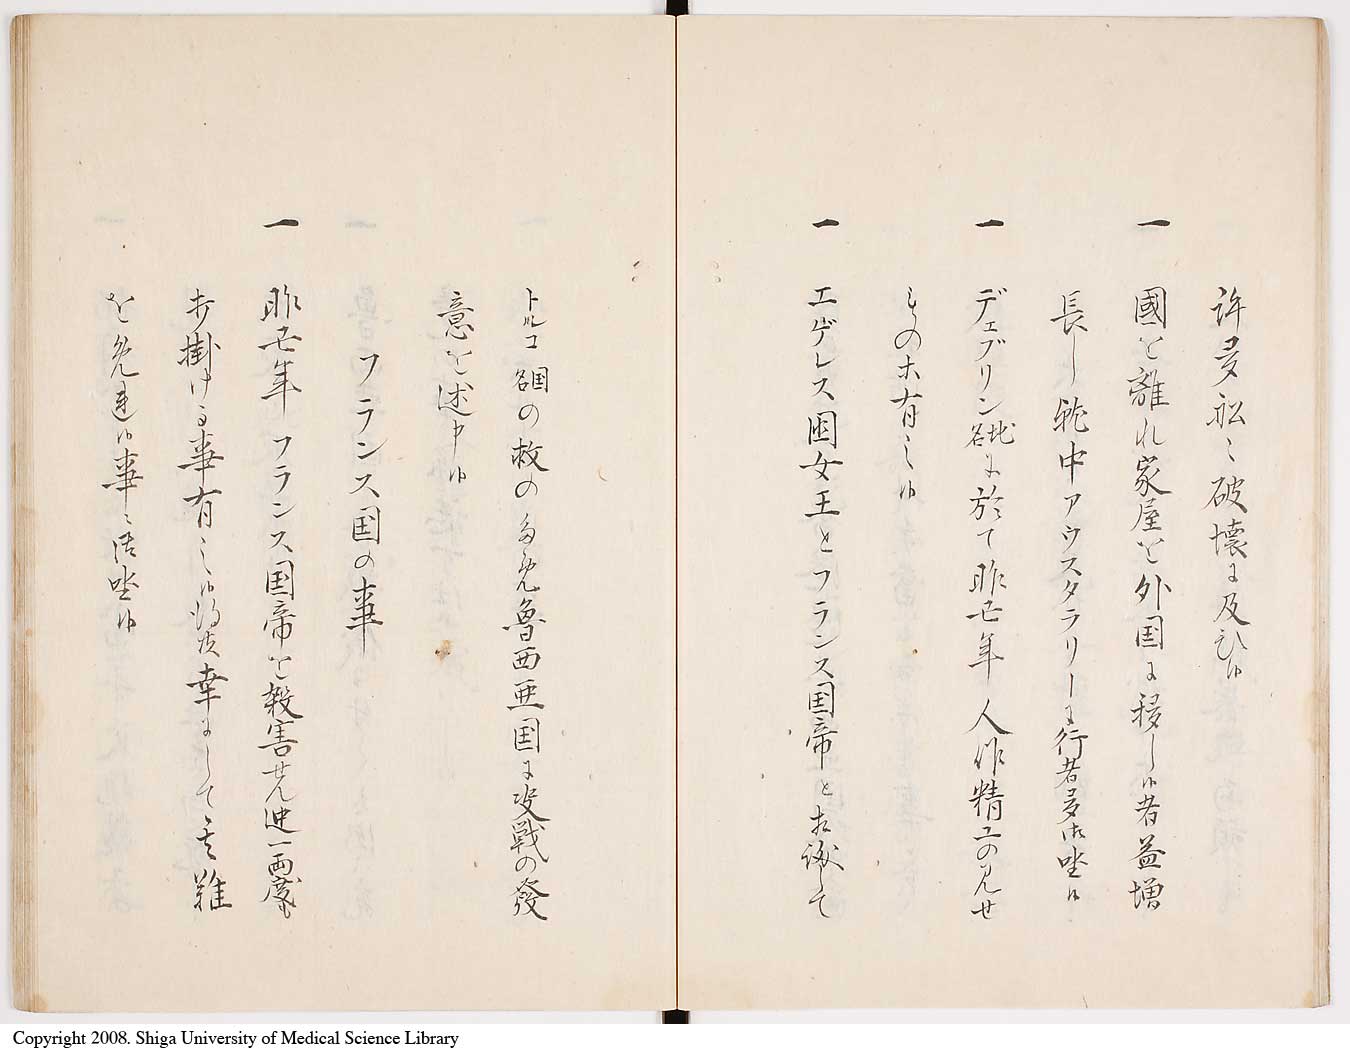 許多船々破壊に及ひ候
一 國を離れ家屋を外国に移し候者益増
長し就中アウスタラリーに行者多御坐候
一 デェブリン地名に於て昨丑年人作精工の見せ
ものホ有之候
一 エゲレス国女王とフランス国帝と相談して
トルコ国名の救の為魯西亜国に交戦の發
意を述申候
フランス国の事
一 昨丑年フランス国帝を殺害せん迚一両度も
打掛ける事有之候得共幸にして其難
を免連候事に御坐候
Copyright 2008. Shiga University of Medical Science Library